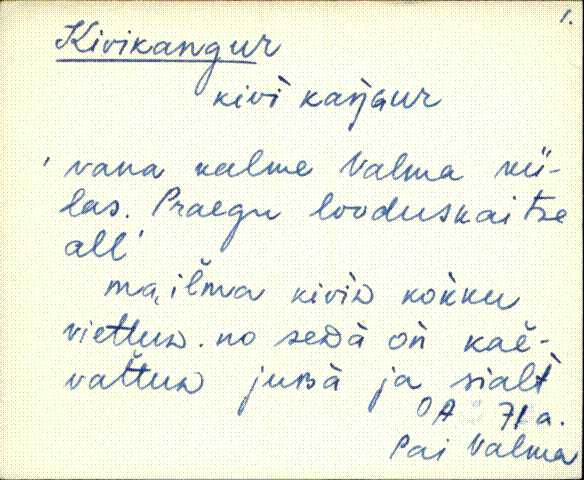 1.
Kivikangur
kivì kaŋGur
'vana kalme Valma kü-
las. Praegu looduskaitse
all'
ma, iľma kiviD kokku
viettuD. no seDà oǹ kaě-
vaťtuD juBà ja sialt
OA 71 a.
Pai Valma